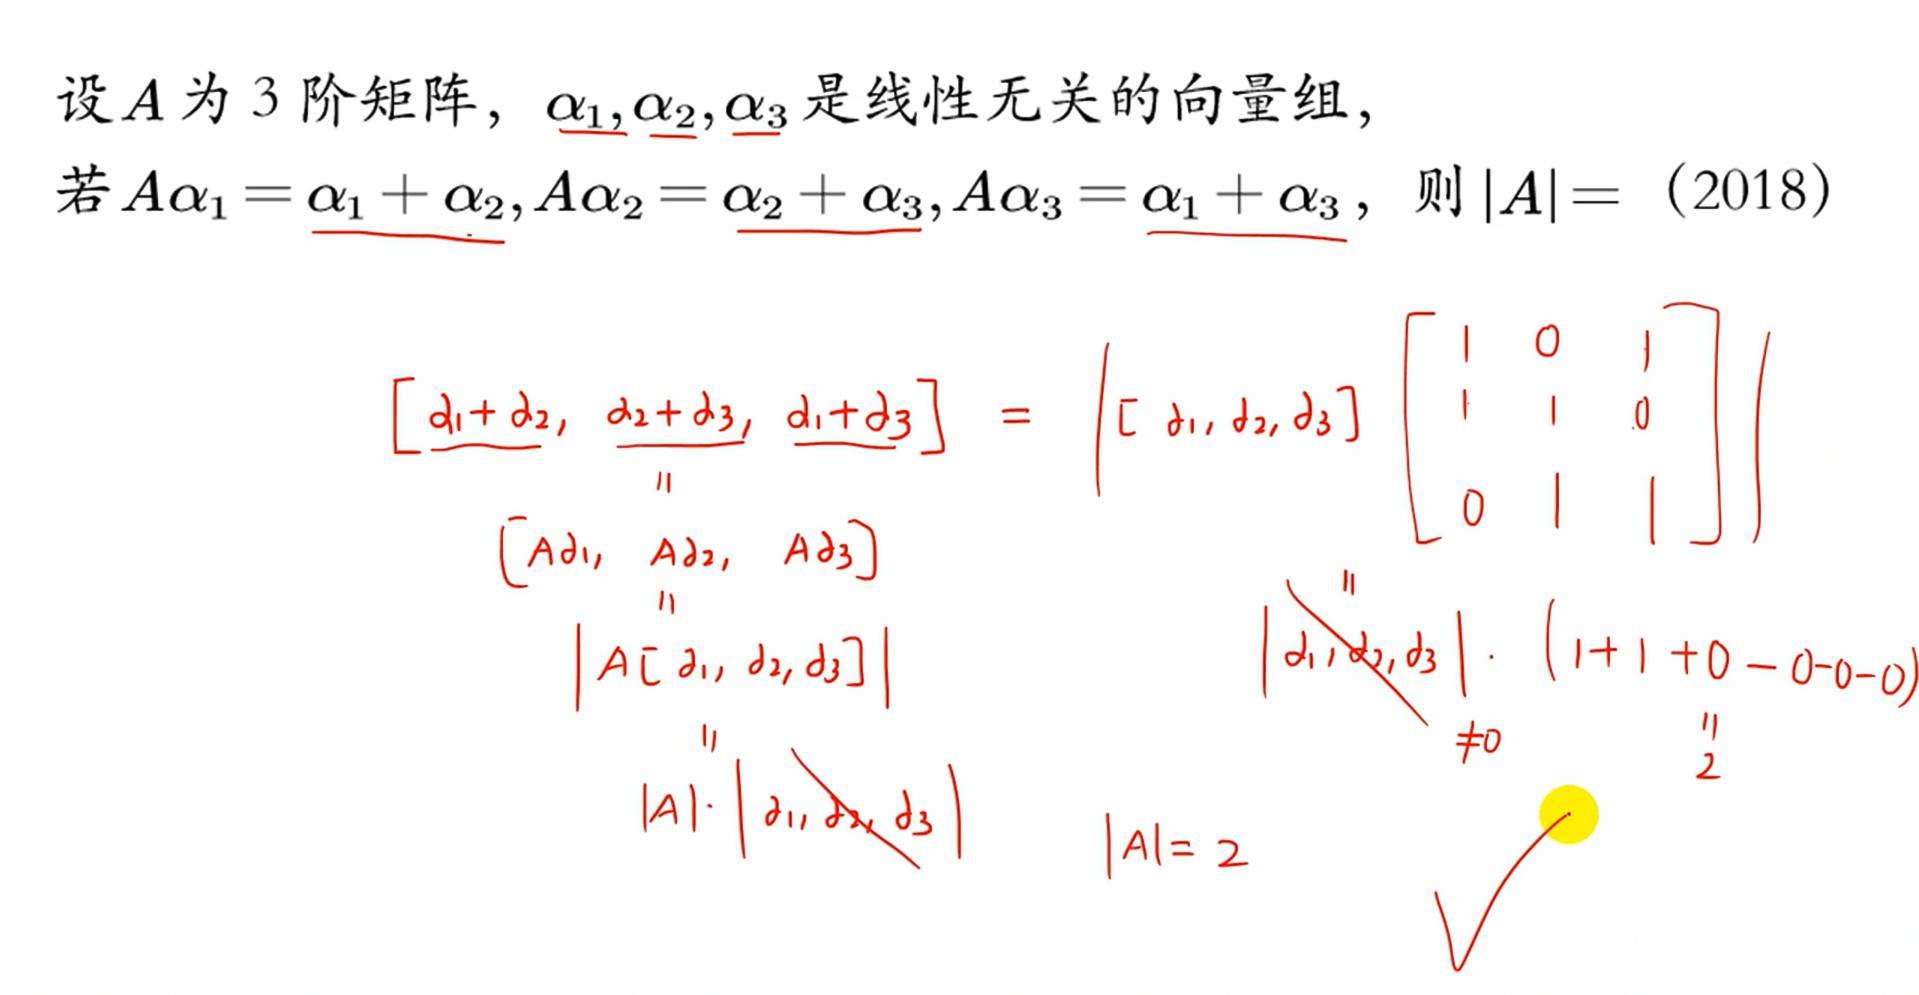 设A为3阶矩阵，α₁,α₂,α₃是线性无关的向量组，
若Aα₁=α₁+α₂,Aα₂=α₂+α₃,Aα₃=α₁+α₃，则|A|=（2018）
[α₁+α₂, α₂+α₃, α₁+α₃] = |[α₁,α₂,α₃] [1 0 1
1 1 0
0 1 1]|
=
[Aα₁, Aα₂, Aα₃]
=
|A[α₁, α₂,α₃]|
=
|A|·|α₁,α₂,α₃|
=
|α₁,α₂,α₃|·(1+1+0-0-0-0)
≠0
=
2
|A|=2